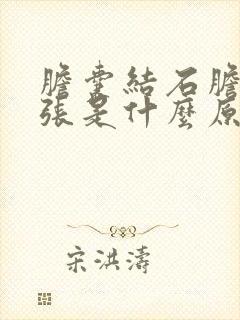 膽囊結石膽
張是什麼原
宋洪濤